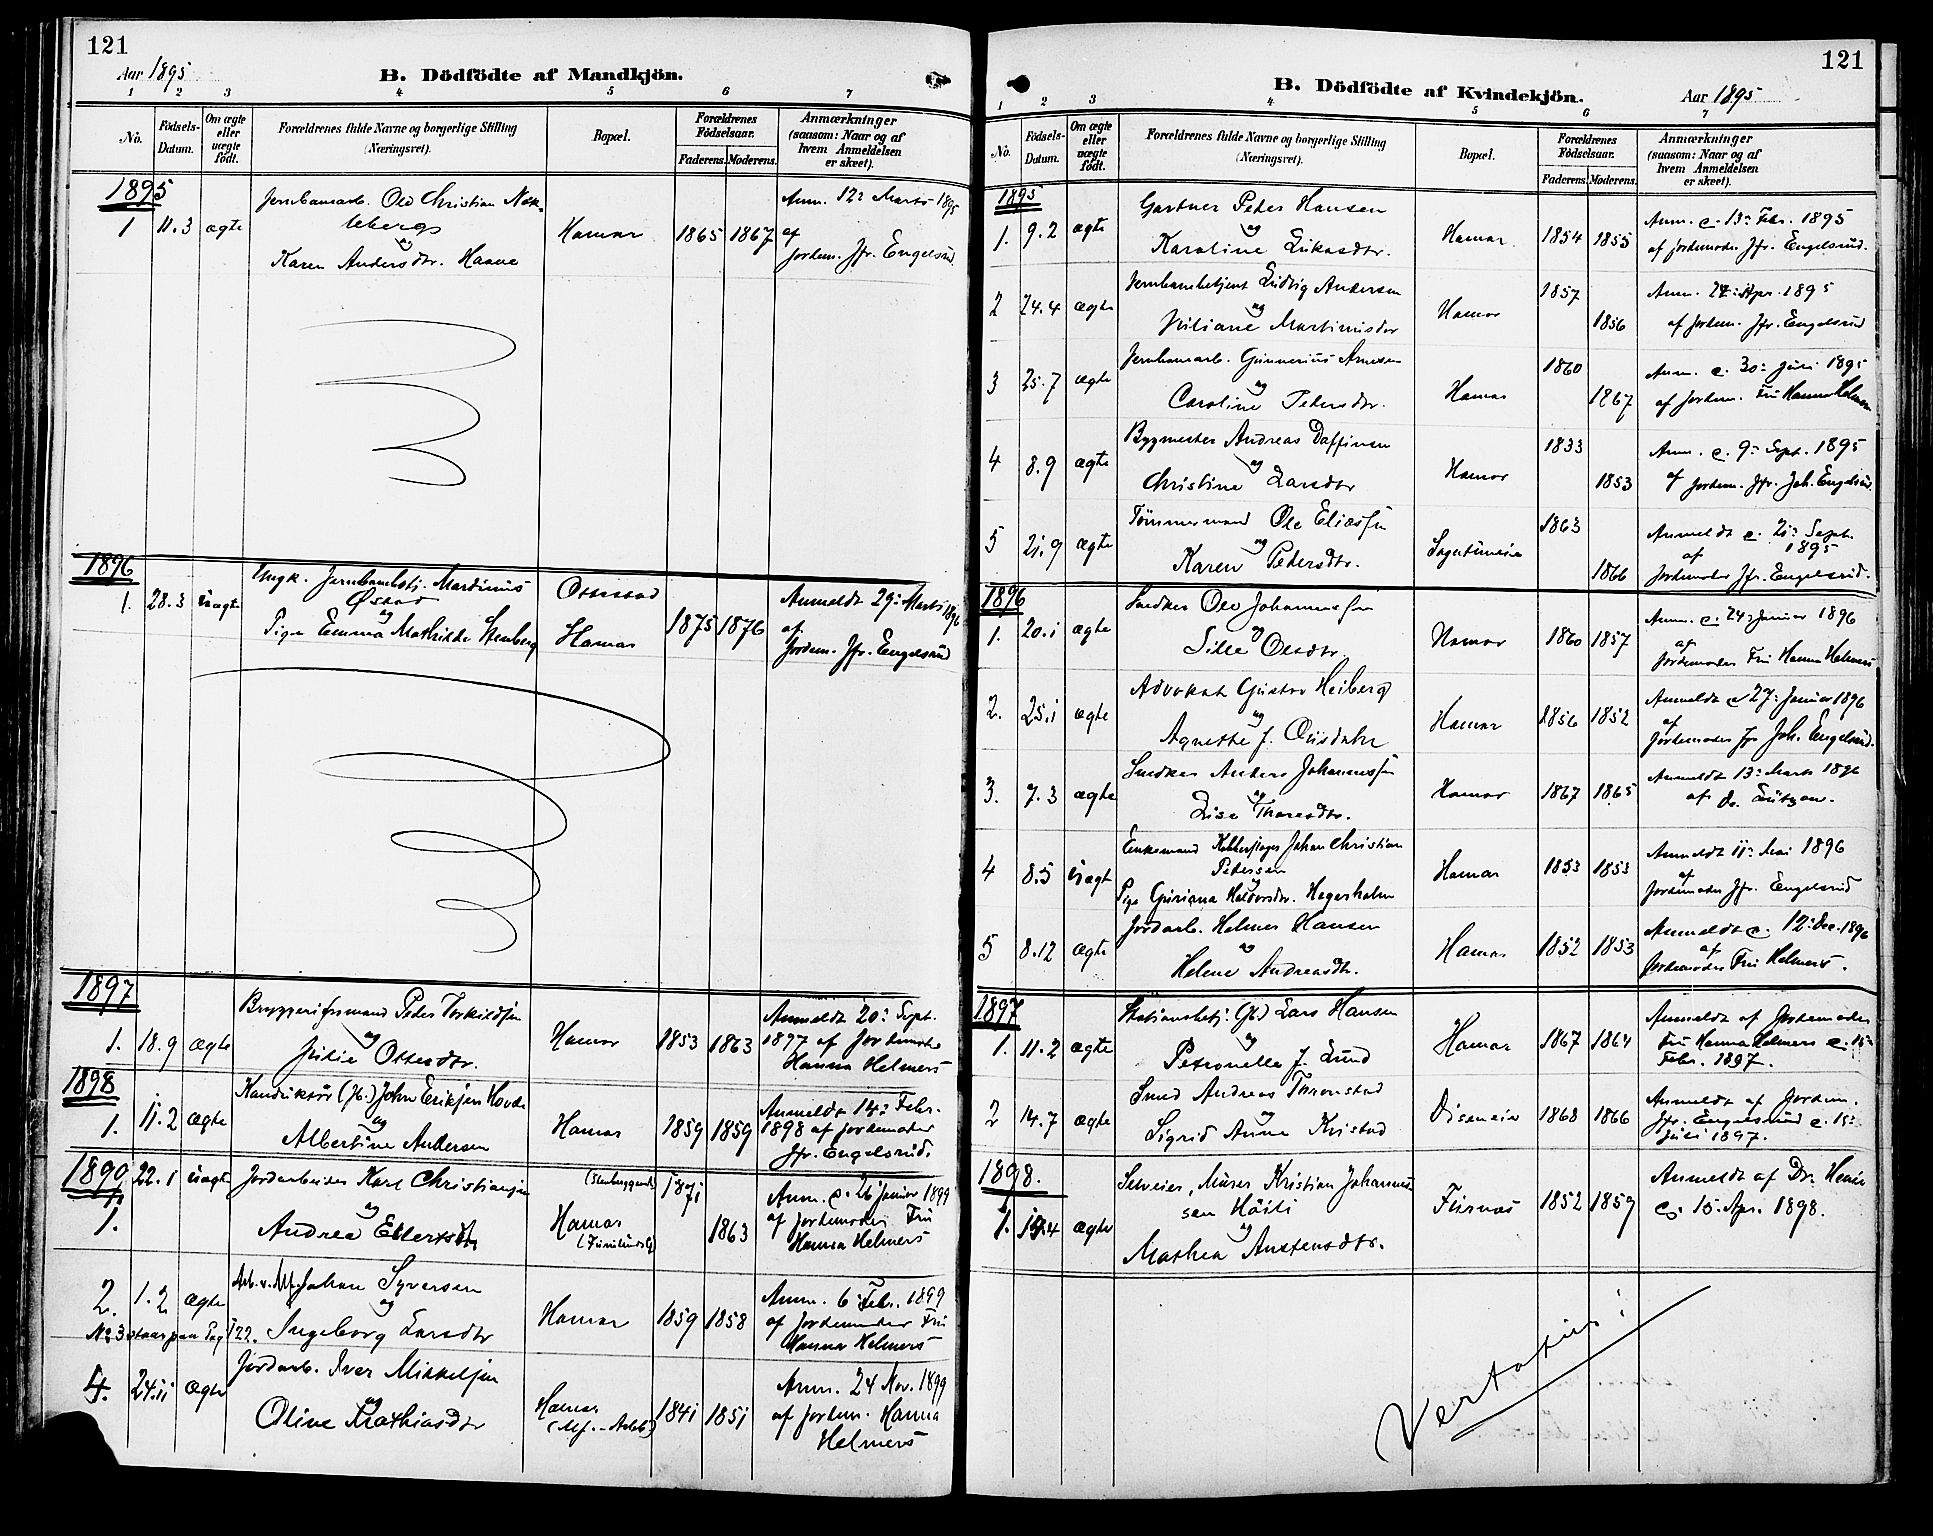 121
Aar 1895
B. Dödfödte af Mandkjön.
1 2 3 4 5 6 7
No. Födsels-Datum. Om ægte eller uægte födt. Forældrenes fulde Navne og borgerlige Stilling (Næringsvei). Bopæl. Forældrenes Födselsaar. Faderens. Moderens. Anmærkninger (saasom: Naar og af hvem Anmeldelsen er skeet).
1895
1 11.3 ægte Jernbanearb. Ole Christian
og
Karen Andersdtr. Haave
Hamar 1865 1867
Anm. 12te Marts 1895
af
Jordem. Jfr. Engelsrud.
1896
1. 28.3 uægte Ungk. Jernbanebetj. Martinius
Østad
og
Pige Emma Mathilde Stenberg
Ottestad
Hamar 1875 1876
Anmeldt 29: Marts 1896
af
Jordem. Jfr. Engelsrud
1897
1. 18.9 ægte Bryggeriformand Peder Torkildsen
og
Julie Ottersdtr.
Hamar 1853 1863
Anmeldt 20: Sept.
1897 af Jordemoder
Hanna Helmers
1898
1. 11.2 ægte Konduktør (Jb.) John Eriksen Hovde
og
Albertine Andersen
Hamar 1859 1859
Anmeldt 14: Febr.
1898 af Jordemoder
Jfr. Engelsrud.
1899
1. 22.1 uægte Jordarbeider Karl Christiansen
og
Andrea Ellertsdtr
Hamar 1871 1863
Anm. e. 26 Januar 1899
af Jordemoder Fru
Hanna Helmers
2. 1.2 ægte Johan Syversen
og
Ingeborg Larsdtr
Hamar 1859 1858
Anm. 6 Febr. 1899
af Jordemoder Fru
Hanna Helmers
No 3 staar paa Pag 122.
4. 24.11 ægte Jordarb. Iver Mikkelsen
og
Oline Mathiasdtr
Hamar 1841 1851
Anm. 24 Nov. 1899
af Jordem. Hanna
Helmers
121
B. Dödfödte af Kvindekjön.
Aar 1895
1 2 3 4 5 6 7
No. Födsels-Datum. Om ægte eller uægte födt. Forældrenes fulde Navne og borgerlige Stilling (Næringsvei). Bopæl. Forældrenes Födselsaar. Faderens. Moderens. Anmærkninger (saasom: Naar og af hvem Anmeldelsen er skeet).
1895
1. 9.2 ægte Gartner Peter Hansen
og
Karoline Lukasdtr.
Hamar. 1854 1855
Anm. e. 13: Febr. 1895
af Jordemoder Jfr. Engelsrud.
2 24.4 ægte Jernbanebetjent Ludvig Andersen
og
Juliane Martinusdtr
Hamar 1857 1856
Anm. 27: Apr. 1895
af Jordem. Jfr. Engelsrud
3 25.7 ægte Jernbanearb. Gunnerius Arnesen
og
Caroline Pedersdtr.
Hamar 1860 1867
Anm. e. 30: Juli 1895
af Jordem. Fru Hanna Helmers
4 8.9 ægte Bygmester Andreas Daffinsen
og
Christine Larsdtr
Hamar 1833 1853
Anm. e. 9: Sept. 1895
af Jordem. Jfr. Joh. Engelsrud.
5 21.9 ægte Tømmermand Ole Eliassen
og
Karen Pedersdtr.
1863 1866
Anmeldt e. 21: Sept.
1895
af
Jordemoder Jfr. Engelsrud.
1896
1. 20.1 ægte Snedker Ole Johannessen
og
Sille Olsdtr.
Hamar 1860 1857
Anm. e. 24: Januar 1896
af
Jordemoder Fru Hanna Helmers
2. 25.1 ægte Advokat Gustav Heiberg
og
Agnethe f.
Hamar 1856 1852
Anmeldt e. 27: Januar 1896
af
Jordemoder Jfr Joh. Engelsrud.
3. 7.3 ægte Snedker Anders Johannessen
og
Lise Thoresdtr.
Hamar 1867 1865
Anmeldt 13: Marts 1896
af Dr. Lützow.
4 8.5 uægt Enkemand Kobberslager Johan Christian
Petersen
og
Pige Guriana Halvorsdtr. Hegersholm
Hamar 1853 1853
Anmeldt 11: Mai 1896
af
Jordemoder Jfr. Engelsrud
5 8.12 ægte Jordarb. Helmer Hansen
og
Helene Andreasdtr.
Hamar 1852 1853
Anmeldt e. 12: Dec. 1896
af
Jordemoder Fru Helmers.
1897
1. 11.2 ægte Stationsbetj. (Jb.) Lars Hansen
og
Petronelle f. Lund
Hamar 1867 1864
Anmeldt af Jordemoder
Fru Hanna Helmers e. 15:
Febr. 1897.
2 14.7 ægte Smed Andreas Thronstad
og
Sigrid Anna Kristad
Diseneie 1868 1866
Anmeldt af Jordem.
Jfr. Engelsrud e. 15:
Juli 1897.
1898.
1. 14.4 ægte Selveier, Murer Kristian Johannes-
sen
og
Mathea Austensdtr.
Furnes 1852 1859
Anmeldt af Dr.
e. 15. Apr. 1898.
Vertatur!